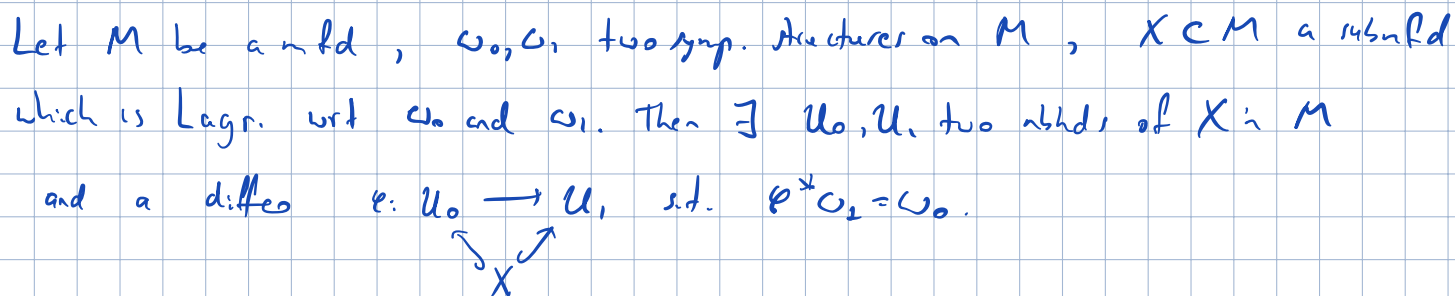 Let M be a mfd, ω₀, ω₁ two symp. structures on M, X ⊂ M a submfd
which is Lagr. wrt ω₀ and ω₁. Then ∃ U₀, U₁ two nbhds of X in M
and a diffeo φ: U₀ → U₁ s.t. φ*ω₁ = ω₀.
X